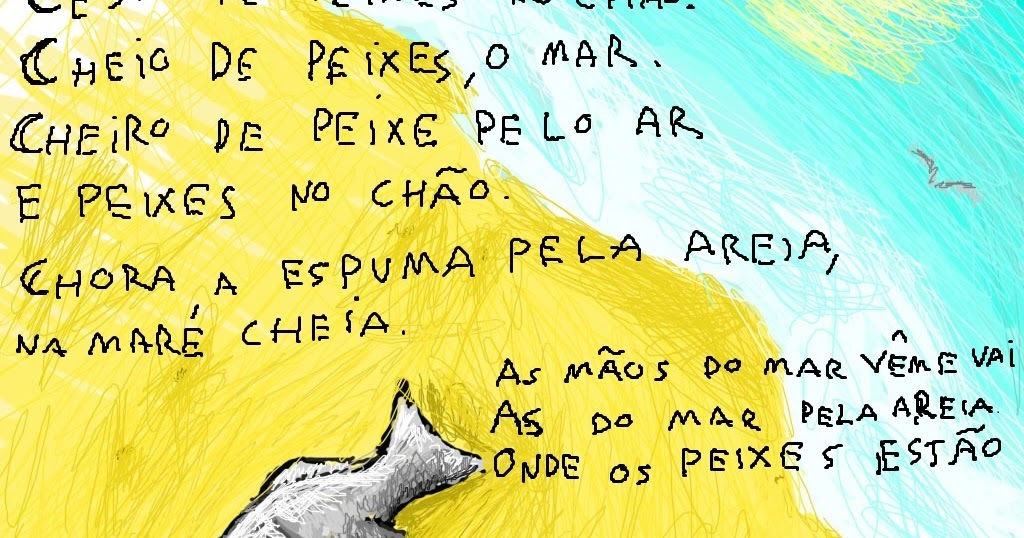 PEIXES NO CHÃO.
CHEIO DE PEIXES, O MAR.
CHEIRO DE PEIXE PELO AR
E PEIXES NO CHÃO.
CHORA A ESPUMA PELA AREIA,
NA MARÉ CHEIA.
AS MÃOS DO MAR VÊM E VAI
AS DO MAR PELA AREIA
ONDE OS PEIXES ESTÃO